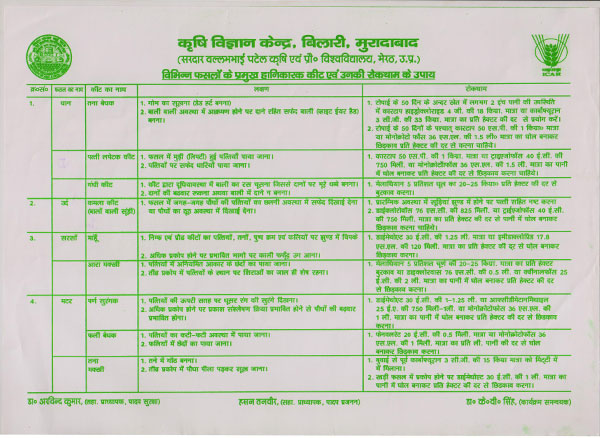 कृषि विज्ञान केन्द्र, बिलारी, मुरादाबाद
(सरदार वल्लभभाई पटेल कृषि एवं प्रौ० विश्वविद्यालय, मेरठ, उ.प्र.)
विभिन्न फसलों के प्रमुख हानिकारक कीट एवं उनकी रोकथाम के उपाय
ICAR
क्र०सं० फसल का नाम कीट का नाम लक्षण रोकथाम
1. धान तना बेधक
1. गोभ का सूखना (डेड हर्ट बनना)
2. बाली वाली अवस्था में आक्रमण होने पर दाने रहित सफेद बाली (व्हाइट ईयर हैड)
बनना।
1. रोपाई के 50 दिन के अन्दर खेत में लगभग 2 इंच पानी की उपस्थिति
में कारटाप हाइड्रोक्लोराइड 4 जी. की 18 किग्रा. मात्रा या कार्बोफ्यूरान
3 सी.जी. की 33 किग्रा. मात्रा का प्रति हेक्टर की दर से प्रयोग करें।
2. रोपाई के 50 दिनों के पश्चात् कारटाप 50 एस.पी. की 1 कि०ग्रा० मात्रा
या मोनोक्रोटोफॉस 36 एस.एल. की 1.5 ली० मात्रा का घोल बनाकर
छिड़काव प्रति हेक्टर की दर से करना चाहिये।
पत्ती लपेटक कीट
1. फसल में मुड़ी (लिपटी) हुई पत्तियाँ पाया जाना।
2. पत्तियों पर सफेद धारियाँ पाया जाना।
1. कारटाप 50 एस.पी. की 1 किग्रा. मात्रा या ट्राइजोफॉस 40 ई.सी. की
750 मिली. या मोनोक्रोटोफॉस 36 एस.एल. की 1.5 ली. मात्रा का पानी
में घोल बनाकर प्रति हेक्टर की दर से छिड़काव करना चाहिये।
गंधी कीट
1. कीट द्वारा दूधियावस्था में बाली का रस चूसना जिससे दानों पर भूरे धब्बे बनना।
2. दानों की बढ़वार रूकना अथवा बाली में दाने न बनना।
1. मैलाथियान 5 प्रतिशत धूल का 20-25 कि०ग्रा० प्रति हेक्टर की दर से
बुरकाव करना।
2. उर्द कमला कीट
(बालों वाली सूंड़ी)
1. फसल में जगह-जगह पौधों की पत्तियों का छलनी अवस्था में सफेद दिखाई देना
या पौधों का ठूठ अवस्था में दिखाई देना।
1. प्रारम्भिक अवस्था में सूंड़ियां झुण्ड में होने पर पत्ती सहित नष्ट करना
2. डाईक्लोरोवॉस 76 एस.सी. की 825 मिली. या ट्राईएजोफॉस 40 ई.सी.
की 750 मिली. मात्रा का पानी में घोल बनाकर प्रति हेक्टर की दर से
छिड़काव करना चाहिये।
3. सरसों माहूँ
1. निम्फ एवं प्रौढ़ कीटों का पत्तियों, तनों, पुष्प क्रम एवं कलियों पर झुण्ड में चिपके
2. अधिक प्रकोप होने पर प्रभावित भागों पर काली फफूंद उग आना।
1. डाईमेथोएट 30 ई.सी. की 1.25 ली. मात्रा या इमीडाक्लोप्रिड 17.8
एस.एल. की 120 मिली. मात्रा का प्रति हेक्टर की दर से घोल बनाकर
छिड़काव करना।
आरा मक्खी
1. पत्तियों में अनियमित आकार के छेदों का पाया जाना।
2. तीव्र प्रकोप में पत्तियों के स्थान पर शिराओं का जाल ही शेष रहना।
1. मैलाथियान 5 प्रतिशत धूल की 20-25 किग्रा. का प्रति हेक्टर
बुरकाव या डाइक्लोरवास 76 एस.सी. की 0.5 ली. या क्वीनालफॉस 25
ई.सी. की 2 ली. का पानी में घोल बनाकर छिड़काव करना।
4. मटर पर्ण सुरंगक
1. पत्तियों की ऊपरी सतह पर धूसर रंग की सुरंगें दिखाना।
2. अधिक प्रकोप होने पर प्रकाश संश्लेषण क्रिया प्रभावित होने से पौधों की बढ़वार
प्रभावित होना।
1. डाईमेथोएट 30 ई.सी. की 1-1.25 ली. या आक्सीडीमेटानमिथाइल
25 ई.ए. की 750 मिली.-1ली. या मोनोक्रोटोफॉस 36 एस.एल. की
1 ली. मात्रा का घोल बनाकर प्रति हेक्टर की दर से छिड़काव
करना।
फली बेधक
1. पत्तियों का कटी-फटी अवस्था में पाया जाना।
2. फलियों में छेदों का पाया जाना।
1. फेनवलरेट 20 ई.सी. की 0.5 मिली. मात्रा या मोनोक्रोटोफॉस 36
एस.एल. की 1 मिली. मात्रा का पानी में प्रति ली. की दर से घोल
बनाकर छिड़काव करना।
तना
मक्खी
1. तने में गाँठ बनना।
2. तीव्र प्रकोप में पौधा पीला पड़कर सूख जाना।
1. बुवाई से पूर्व कार्बोफ्यूरान 3 सी.जी. की 15 किग्रा मात्रा को मिट्टी में
मिलाना।
2. खड़ी फसल में प्रकोप होने पर डाईमेथोएट 30 ई.सी. की 1 ली. मात्रा का
पानी में घोल बनाकर प्रति हेक्टर की दर से छिड़काव करना।
डा० अरविन्द कुमार, (सहा. प्राध्यापक, पादप सुरक्षा) हसन तनवीर, (सहा. प्राध्यापक, पादप प्रजनन) डा० के०वी० सिंह, (कार्यक्रम समन्वयक)